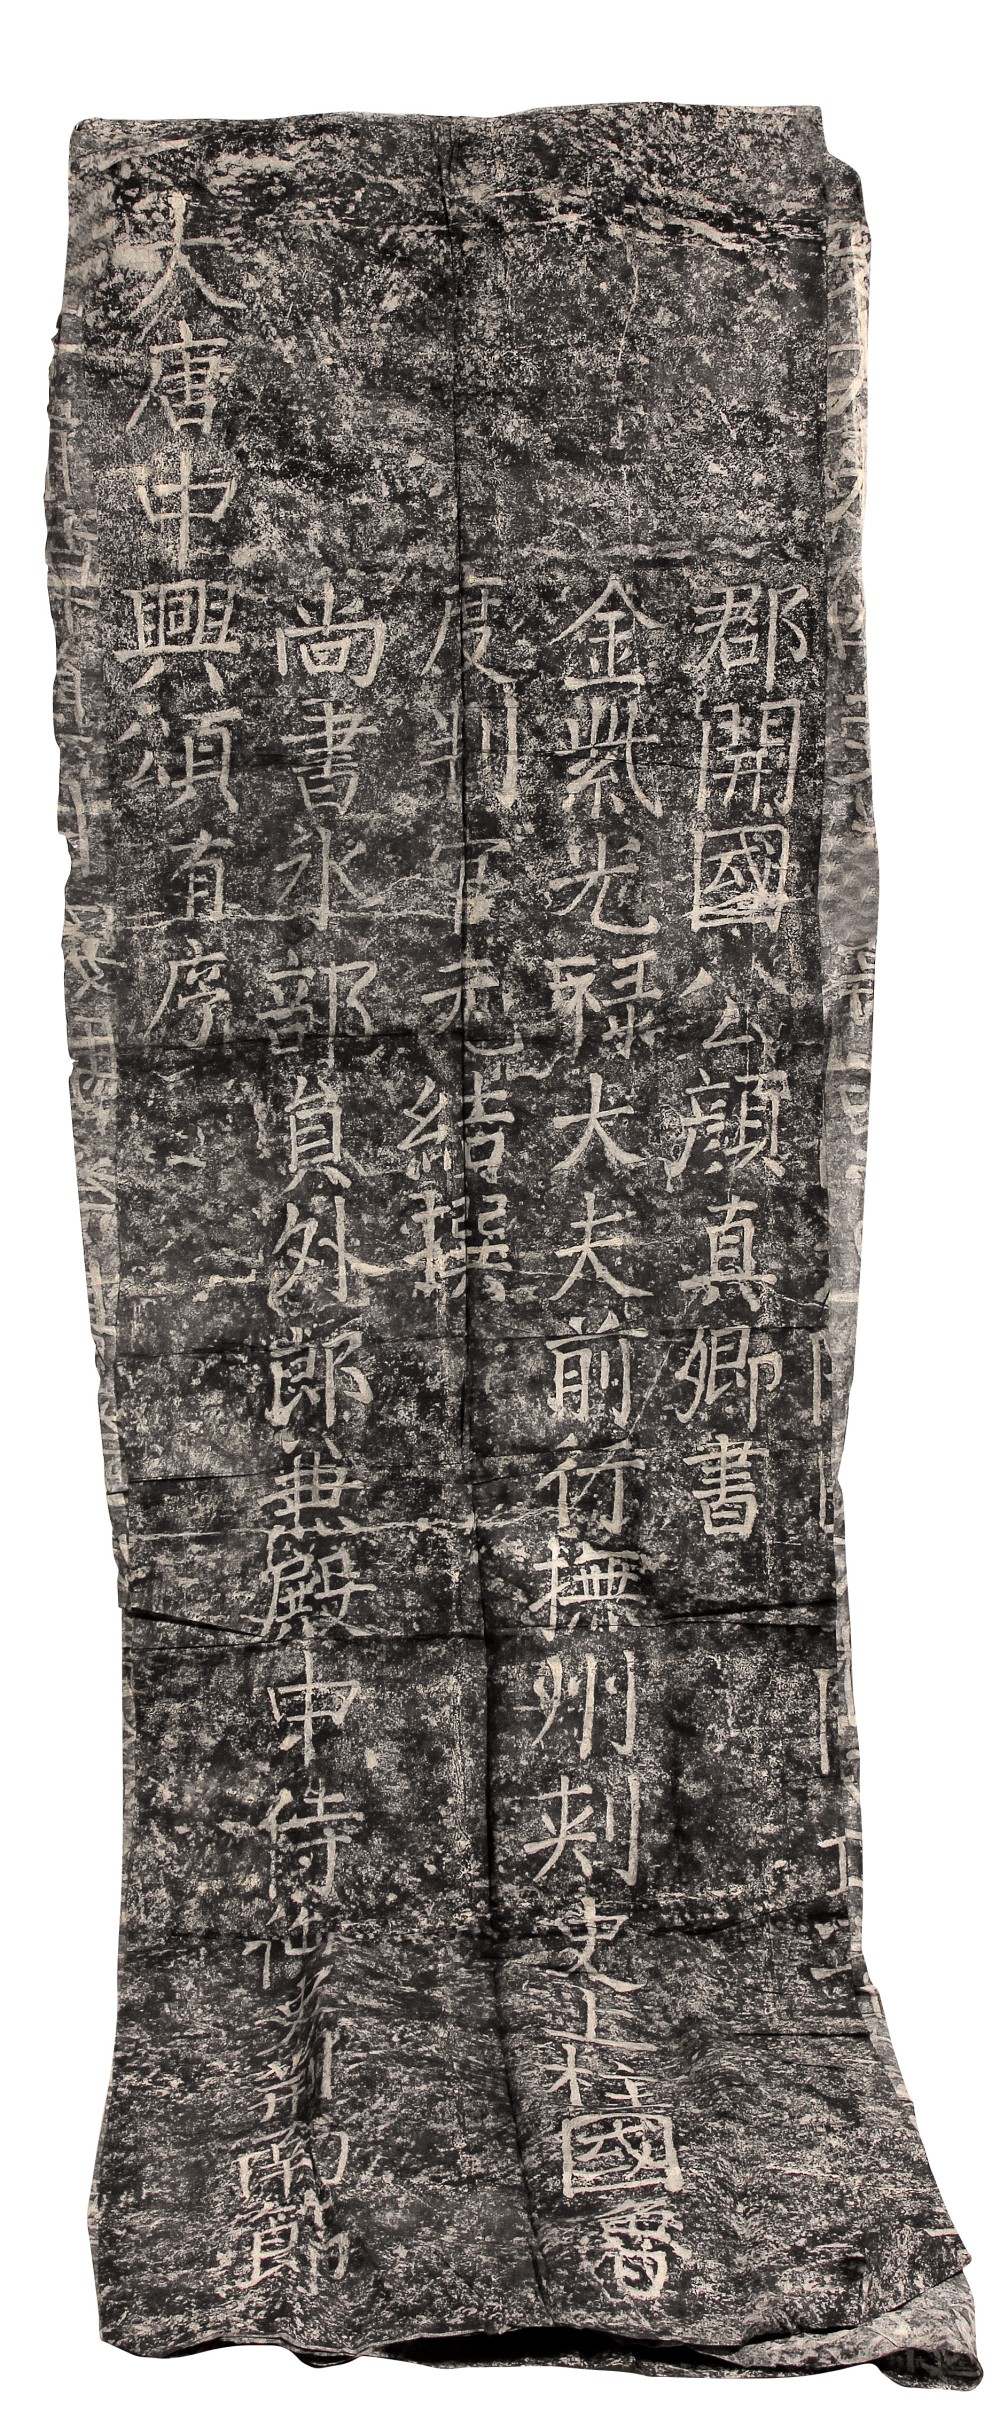 大唐中興頌有序
尚書水部員外郎兼殿中侍御史荊南節
度判官元結撰
金紫光祿大夫前行撫州刺史上柱國魯
郡開國公顏真卿書